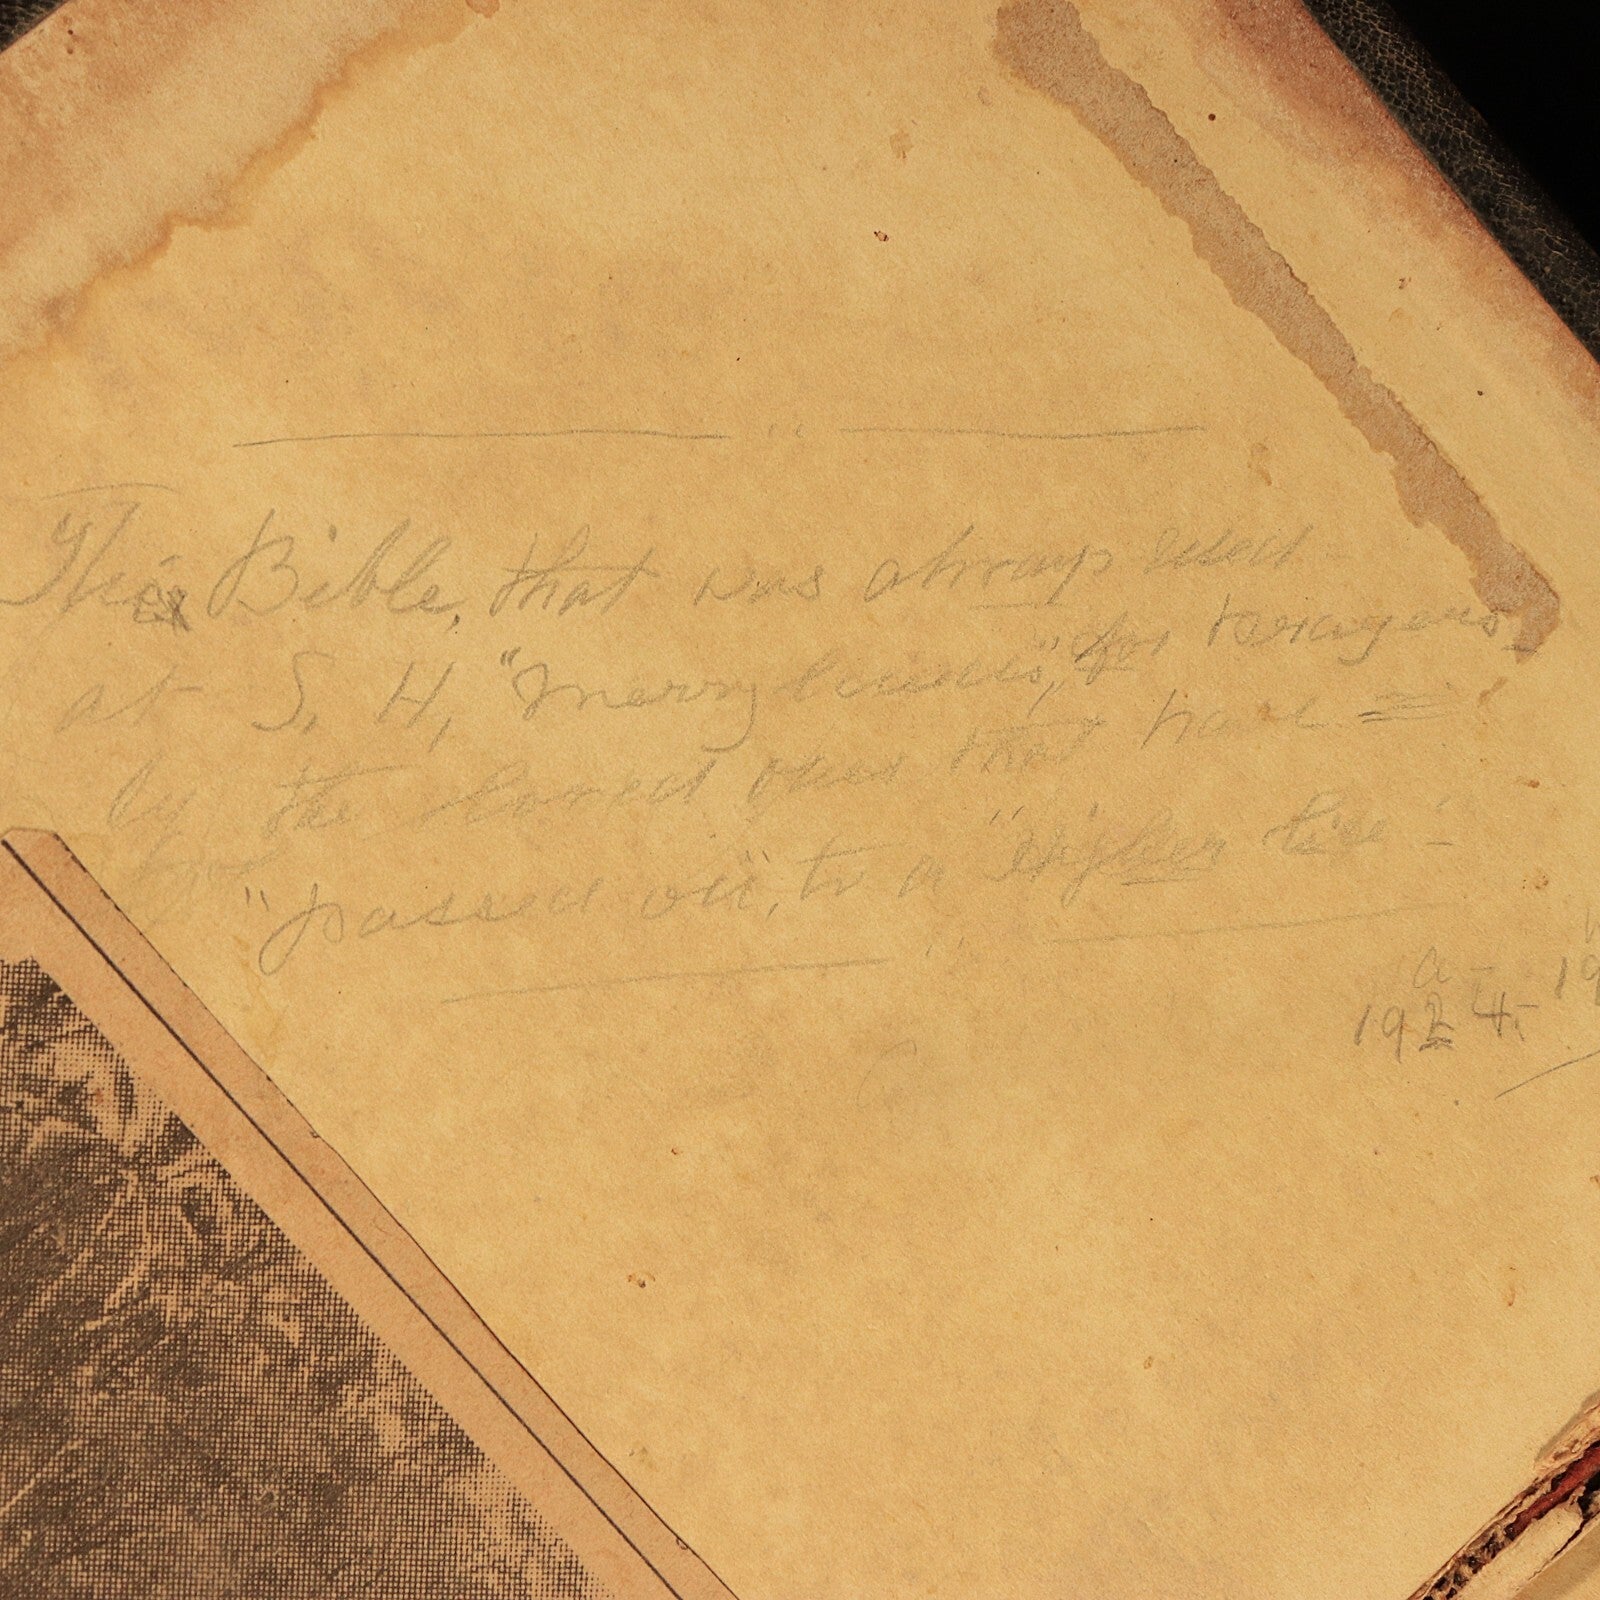 The Bible, that was always used
at S. H, "Merry
for prayers
by the loved ones that had =
"passed on", to a "Higher life"-
a- 19
1924-